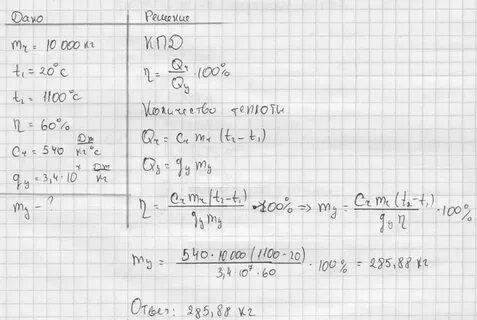 Дано
m₂ = 10 000 кг
t₁ = 20°C
t₂ = 1100°C
η = 60%
C₂ = 540 Дж/кг°C
qy = 3,4·10⁷ Дж/кг
my – ?
Решение
КПД
η = Q₂/Qy · 100%
Количество теплоты
Q₂ = C₂ m₂ (t₂ – t₁)
Qy = qy my
η = C₂ m₂ (t₂ – t₁)/qy my · 100% ⇒ my = C₂ m₂ (t₂ – t₁)/qy η · 100%
my = 540 · 10 000 (1100 – 20)/3,4 · 10⁷ · 60 · 100% = 285,88 кг
Ответ: 285,88 кг